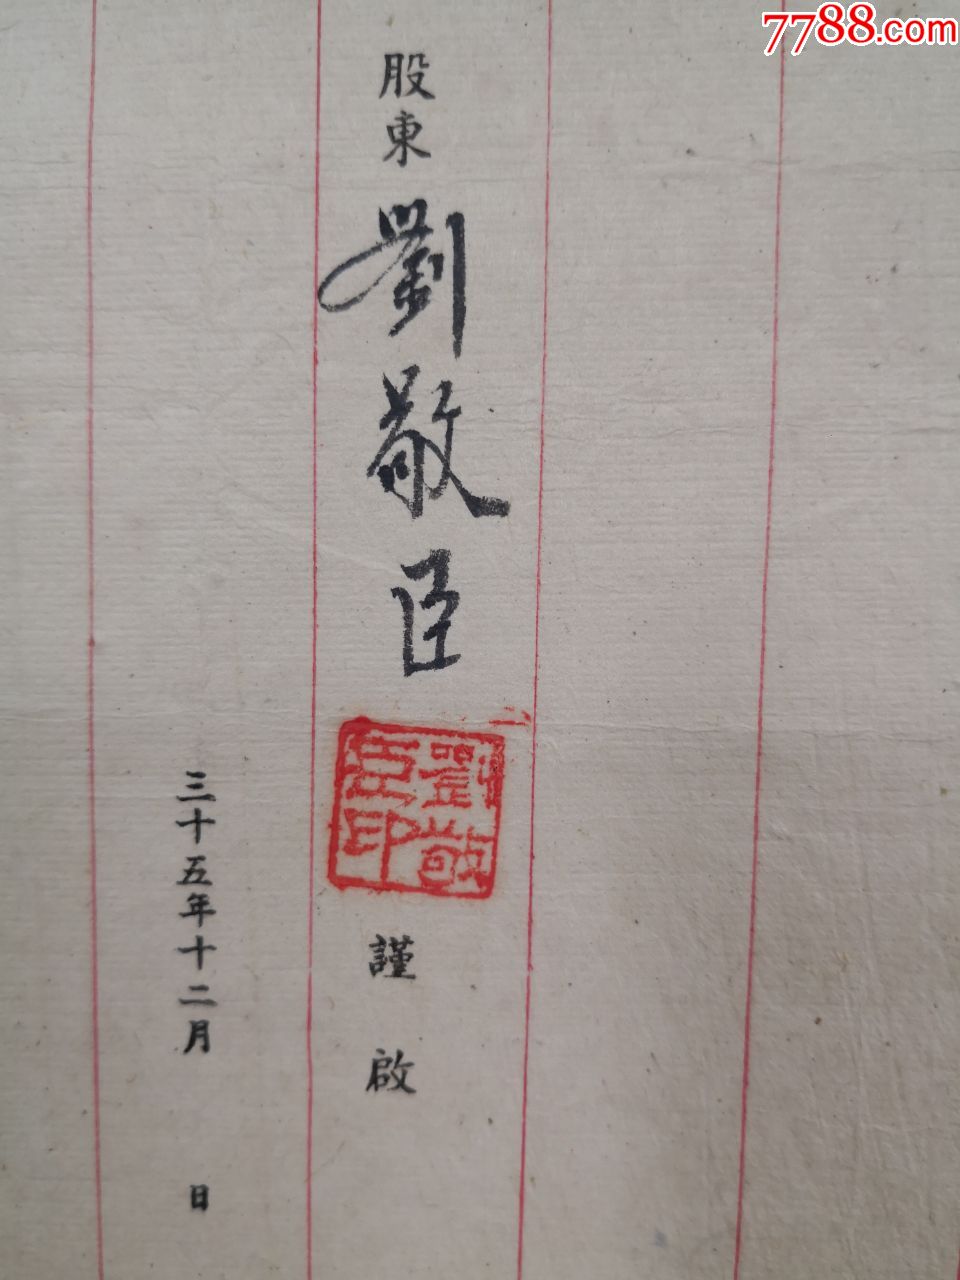 7788.com
股東 劉敬臣 謹啟
劉敬
臣印
三十五年十二月 日